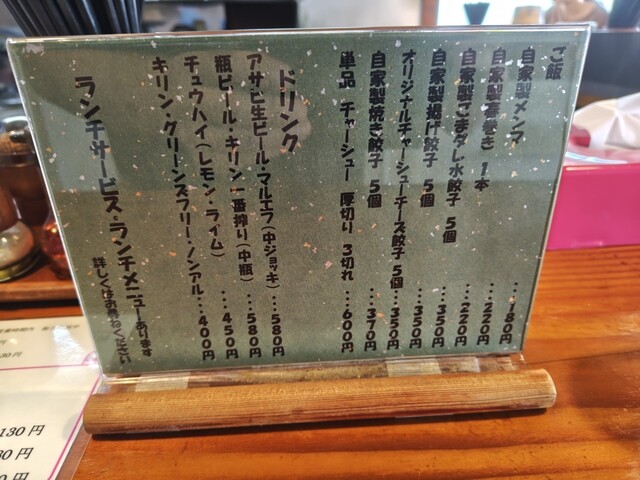 ご飯 …180円
自家製メンマ …250円
自家製春巻き 1本 …250円
自家製ごまダレ水餃子 5個 …350円
自家製揚げ餃子 5個 …350円
オリジナルチャーシューチーズ餃子 5個…350円
自家製焼き餃子 5個 …370円
単品 チャーシュー 厚切り 3切れ …600円
ドリンク
アサヒ生ビール・マルエフ(中ジョッキ)…580円
瓶ビール・キリン一番搾り(中瓶) …580円
チュウハイ(レモン・ライム) …450円
キリン・グリーンズフリー・ノンアル…400円
ランチサービス・ランチメニューあります
詳しくはお尋ねください
130円
30円